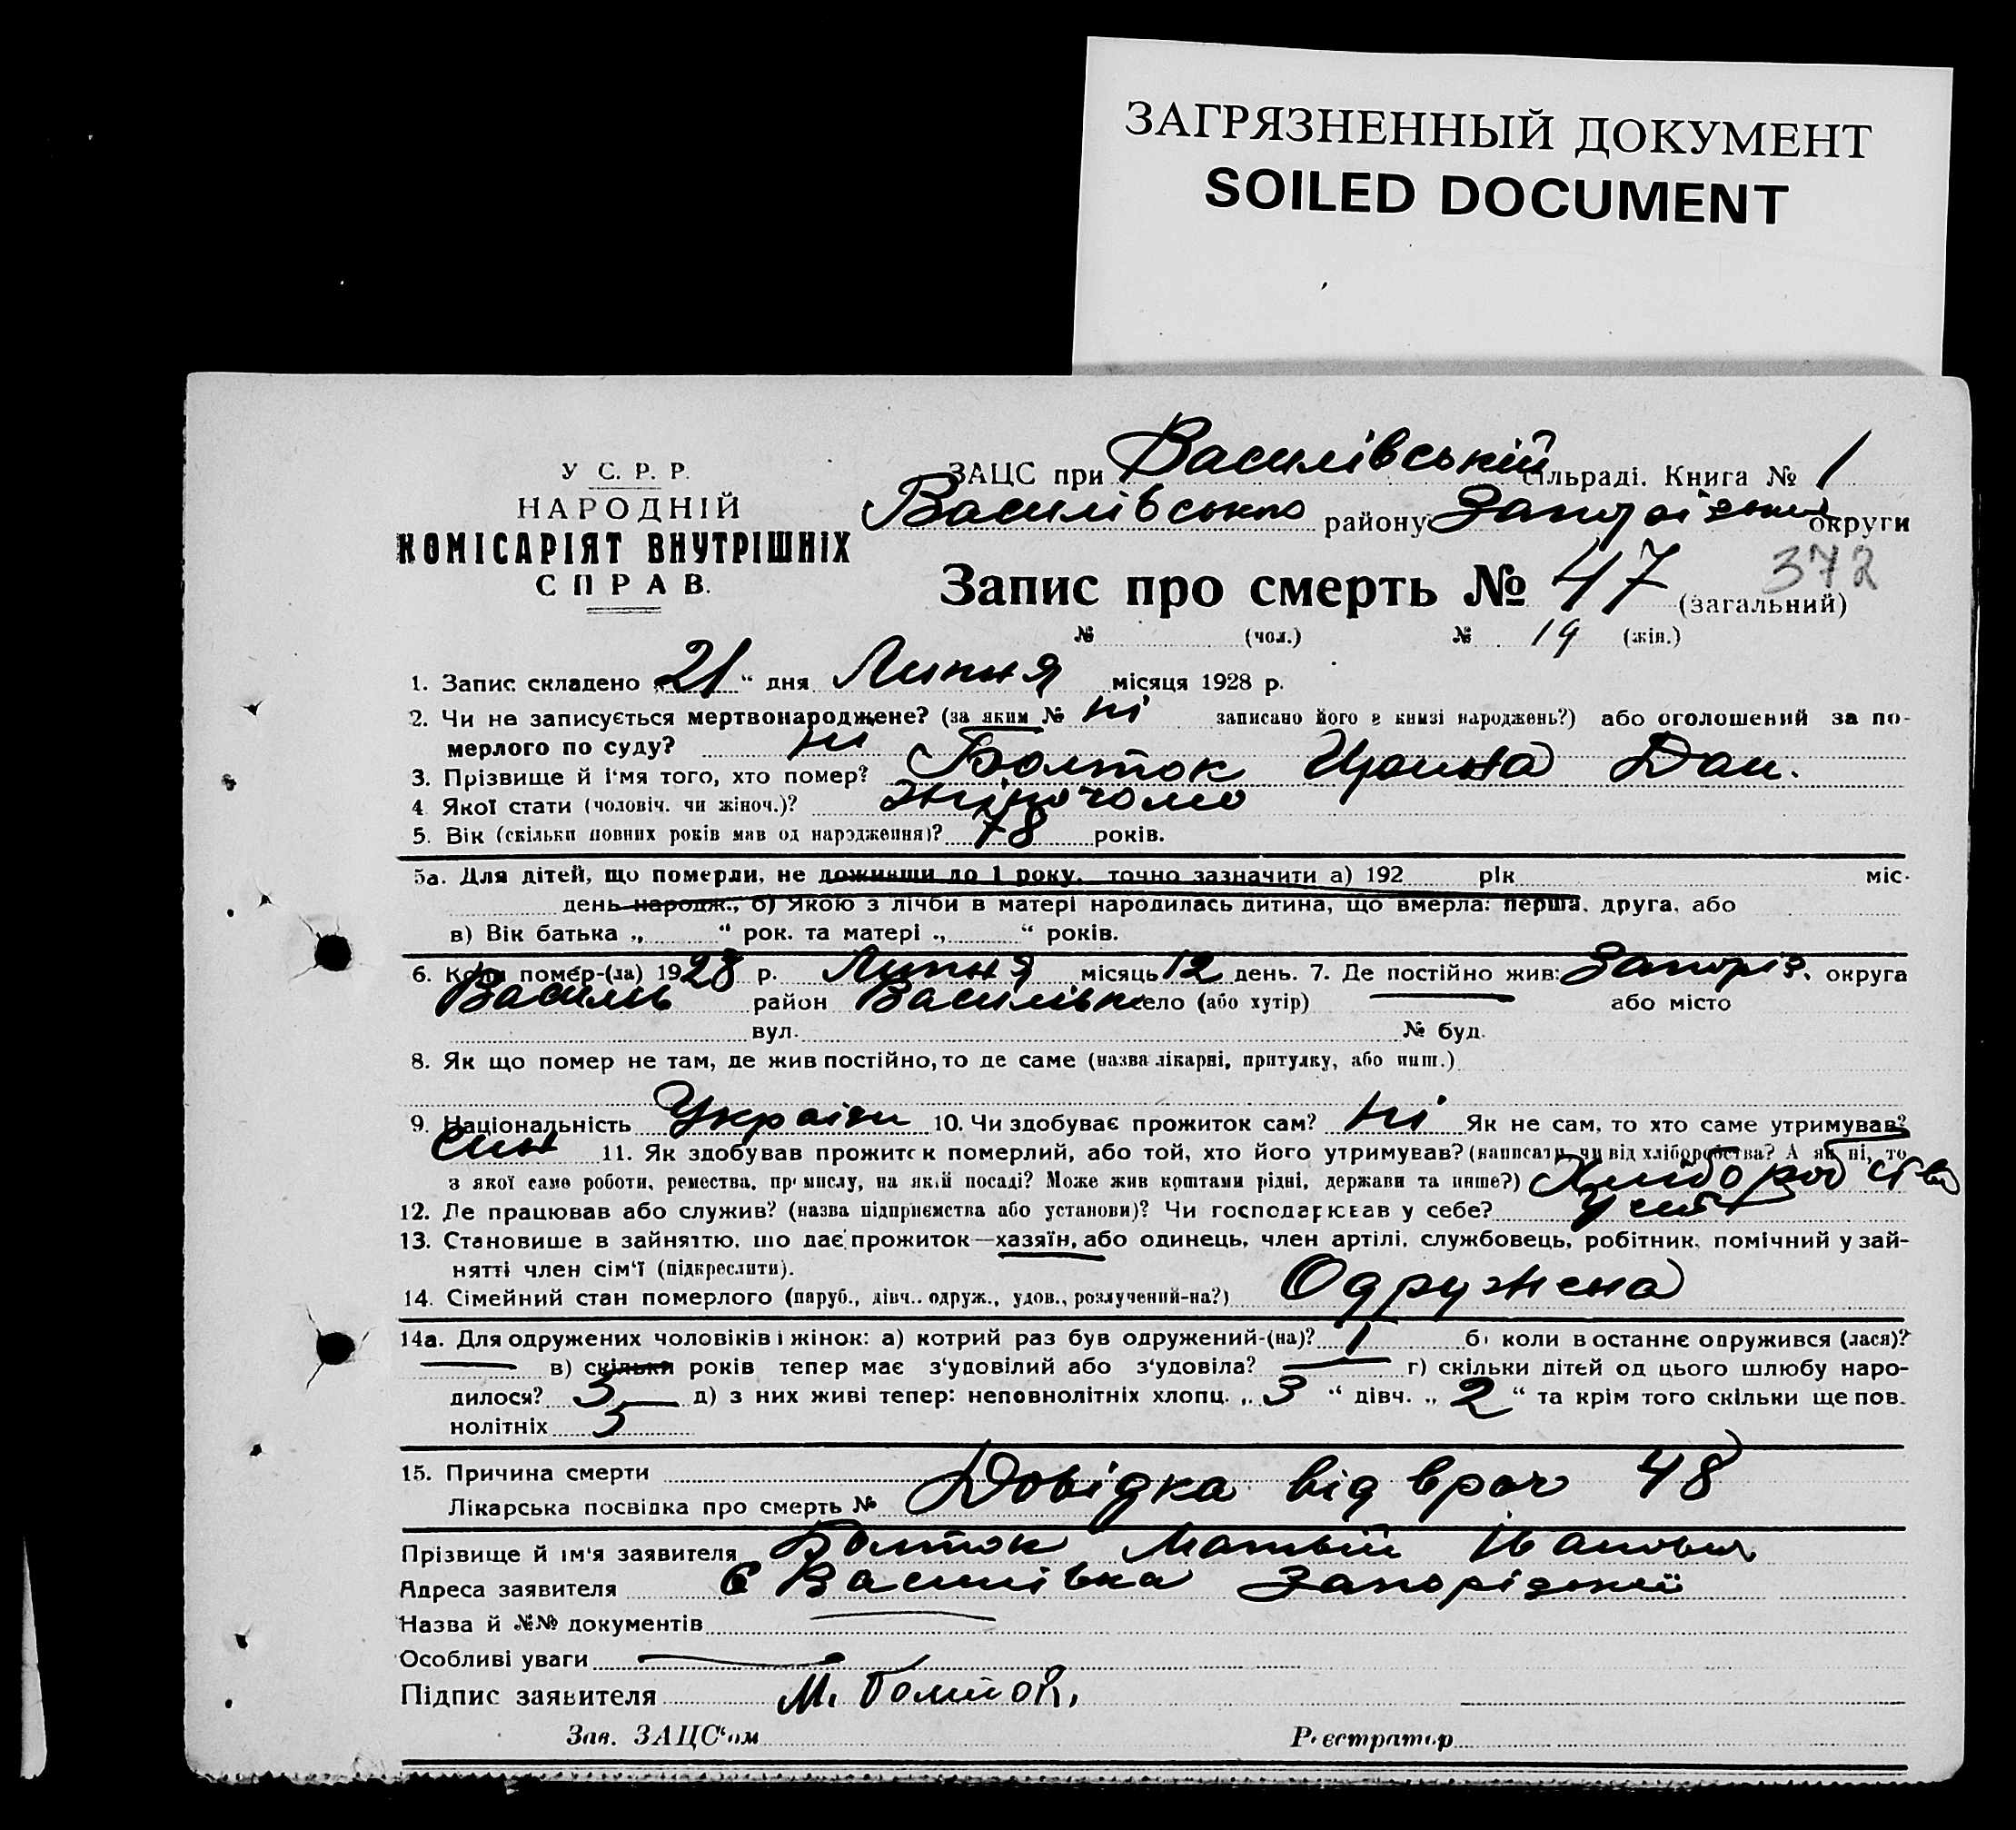 ЗАГРЯЗНЕННЫЙ ДОКУМЕНТ
SOILED DOCUMENT
У С. Р. Р.
НАРОДНІЙ
КОМІСАРІЯТ ВНУТРІШНІХ
СПРАВ.
ЗАЦС при Василівській сільраді. Книга № 1
Василівського району Запорізької округи
372
Запис про смерть № 47 (загальний)
№ (чол.) № 19 (жін.)
1. Запис складено „21“ дня Липня місяця 1928 р.
2. Чи не записується мертвонароджене? (за яким № ні записано його в книзі народжень?) або оголошений за по-
мерлого по суду? ні
3. Прізвище й і'мя того, хто помер? Болток Ирина Дан.
4 Якої стати (чоловіч. чи жіноч.)? жіночою
5. Вік (скільки повних років мав од народження)? 78 років.
5а. Для дітей, що померли, не доживши до 1 року, точно зазначити а) 192 рік міс.
день народж., б) Якою з лічби в матері народилась дитина, що вмерла: перша, друга, або
в) Вік батька „ “ рок. та матері „ “ років.
6. Коли помер-(ла) 1928 р. Липня місяць 12 день. 7. Де постійно жив: Запоріз. округа
Василь район Василівка село (або хутір) або місто
вул. № буд.
8. Як що помер не там, де жив постійно, то де саме (назва лікарні, притулку, або инш.)
9. Національність Україн 10. Чи здобуває прожиток сам? ні Як не сам, то хто саме утримував?
син 11. Як здобував прожиток померлий, або той, хто його утримував? (написати, чи від хліборобства? А як ні, то
з якої саме роботи, ремества, промислу, на якій посаді? Може жив коштами рідні, держави та инше?) Хліборобства
12. Де працював або служив? (назва підприємства або установи)? Чи господарював у себе? У себе
13. Становище в зайняттю, що дає прожиток—хазяїн, або одинець, член артілі, службовець, робітник, помічний у зай-
нятті член сім'ї (підкреслити).
14. Сімейний стан померлого (паруб., дівч., одруж., удов., розлучений-на?) Одружена
14а. Для одружених чоловіків і жінок: а) котрий раз був одружений-(на)? 1 б) коли в останнє опружився (лася)?
в) скільки років тепер має з'удовілий або з'удовіла? г) скільки дітей од цього шлюбу наро-
дилося? 5 д) з них живі тепер: неповнолітніх хлопц. „3“ дівч. „2“ та крім того скільки ще пов.
нолітніх 5
15. Причина смерти
Лікарська посвідка про смерть № Довідка від врач 48
Прізвище й ім'я заявителя Болток Матвій Іванович
Адреса заявителя с Василівка Запорізької
Назва й №№ документів
Особливі уваги
Підпис заявителя М. Болток.
Зав. ЗАЦС'ом Реєстратор